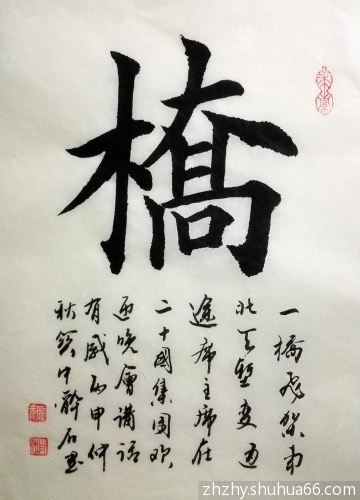 橋
一橋飛架南
北天塹變通
途席主席在
二十國集團歡
迎晚會講話
有感丙申仲
秋中醉石
zhzhyshuhua66.com